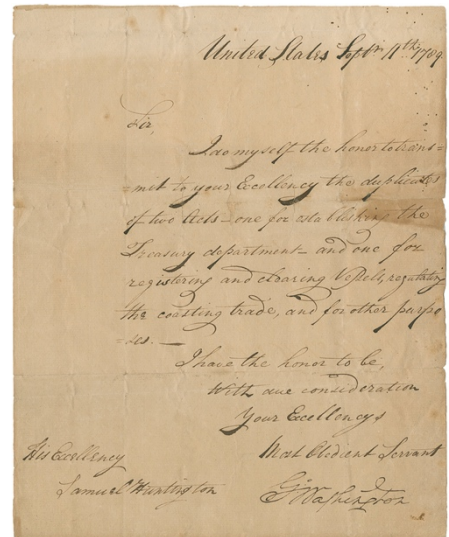 United States Septr 11th 1789
Sir,
I do myself the honor to trans=
=mit to your Excellency the duplicates
of two Acts—one for establishing the
Treasury department—and one for
registering and clearing Vessels, regulating
the coasting trade, and for other purpo
=ses.—
I have the honor to be,
With due consideration
Your Excellency's
Most Obedient Servant
Go Washington
His Excellency
Samuel Huntington